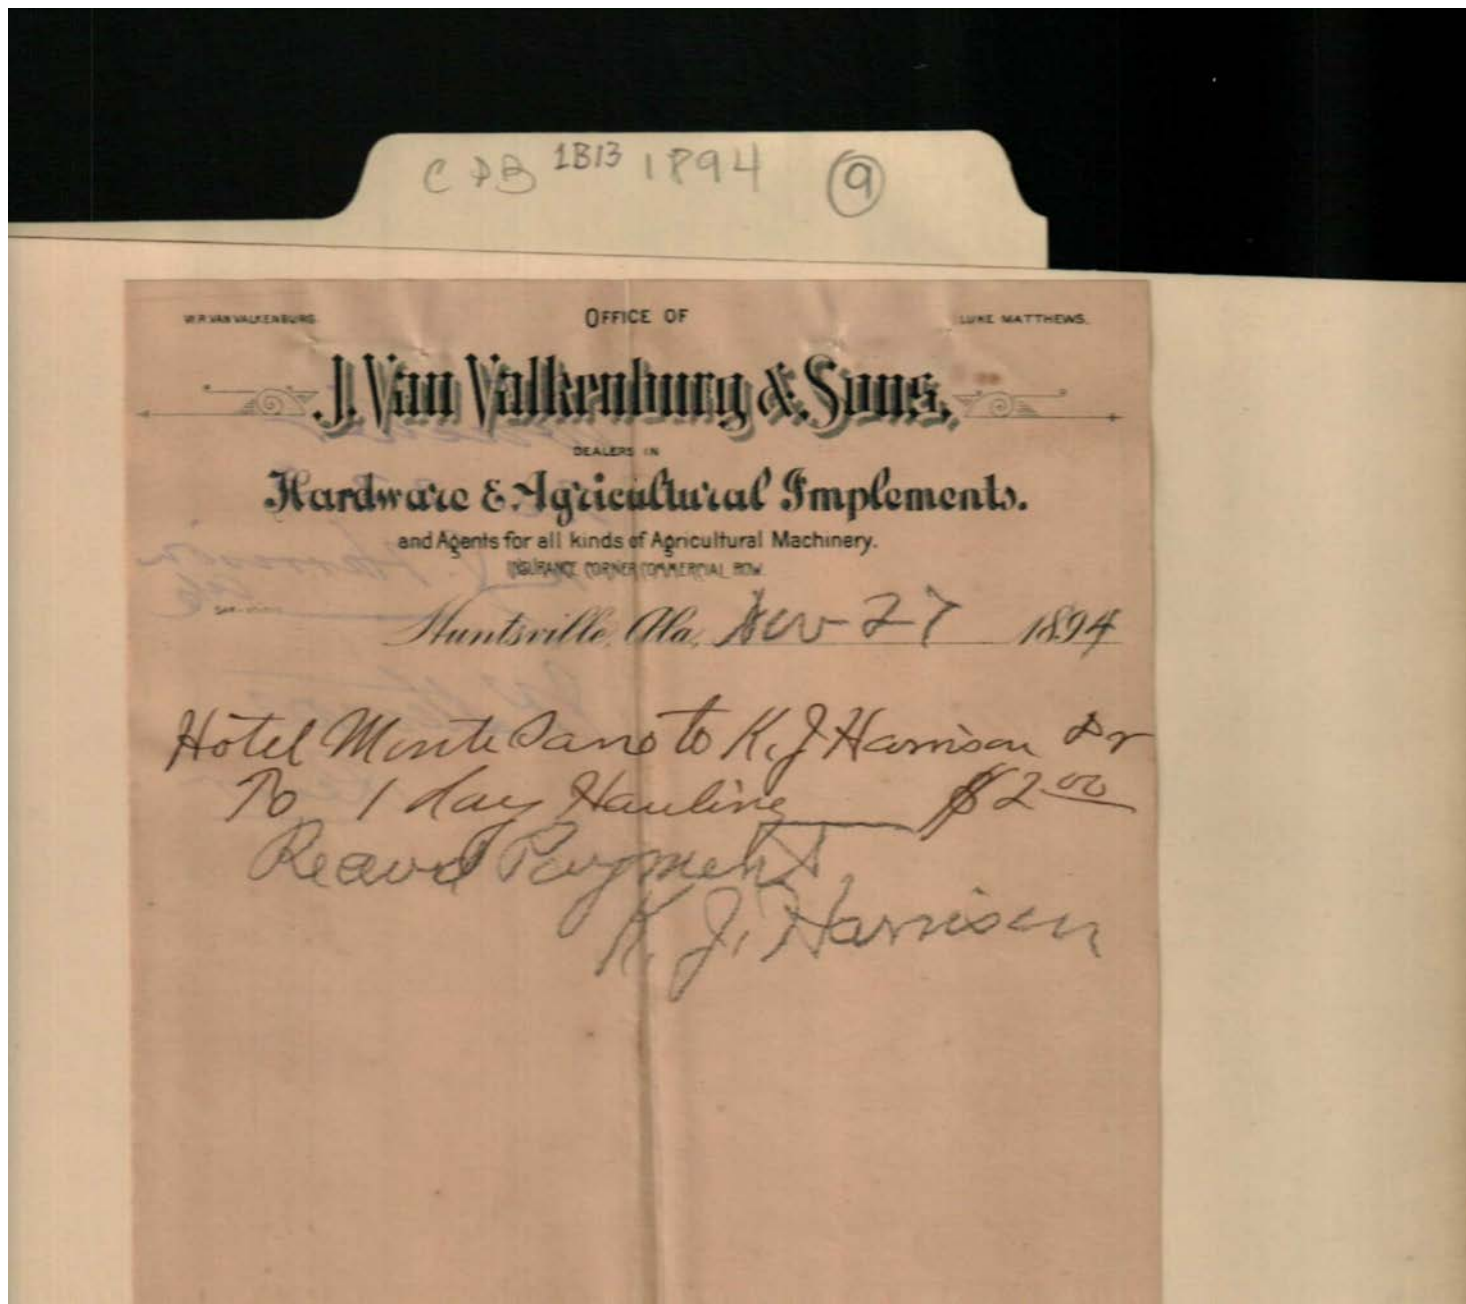 C DB 1B13 1894 9
W.R. VAN VALKENBURG. OFFICE OF LUKE MATTHEWS.
J. Van Valkenburg & Sons,
DEALERS IN
Hardware & Agricultural Implements.
and Agents for all kinds of Agricultural Machinery.
INSURANCE CORNER COMMERCIAL ROW.
Huntsville, Ala, Nov 27 1894
Hotel Monte Sano to K. J Harrison Dr
To 1 day Hauling $2.00
Recevd Payment
K. J. Harrison